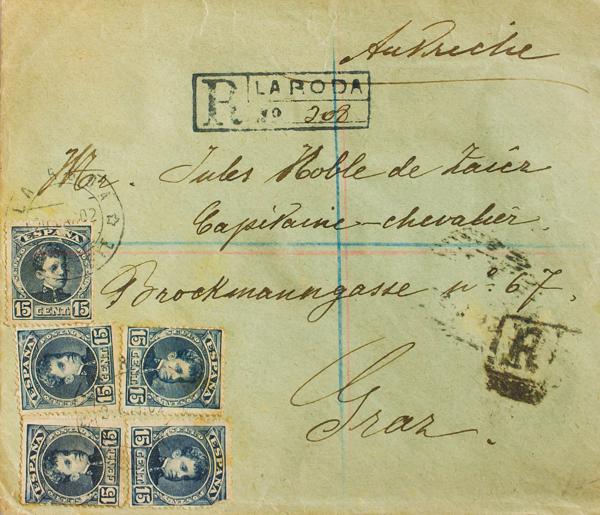 Autriche
R LA RODA
No 208
Mr. Jules Noble de
Capitaine-chevalier.
Brockmanngasse no. 67.
Graz.
LA RODA
02
R
ESPAÑA
15 CENT. 15
ESPAÑA
15 CENT 15
ESPAÑA
15 CENT 15
ESPAÑA
15 CENT 15
ESPAÑA
15 CENT 15